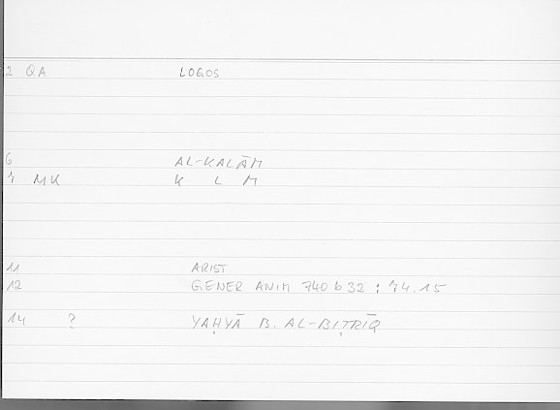 2 QA LOGOS
6 AL-KALĀM
7 MK K L M
11 ARIST
12 GENER ANIM 740 b 32 : 74.15
14 ? YAḤYĀ B. AL-BIṬRĪQ